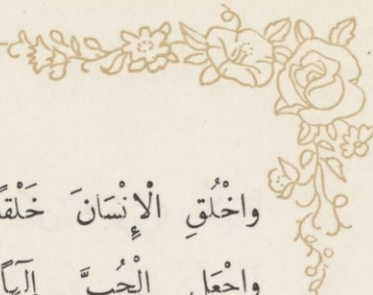 واخْلُقِ الْإِنْسَانَ خَلْقًا
واجْعَلِ الْحُبَّ